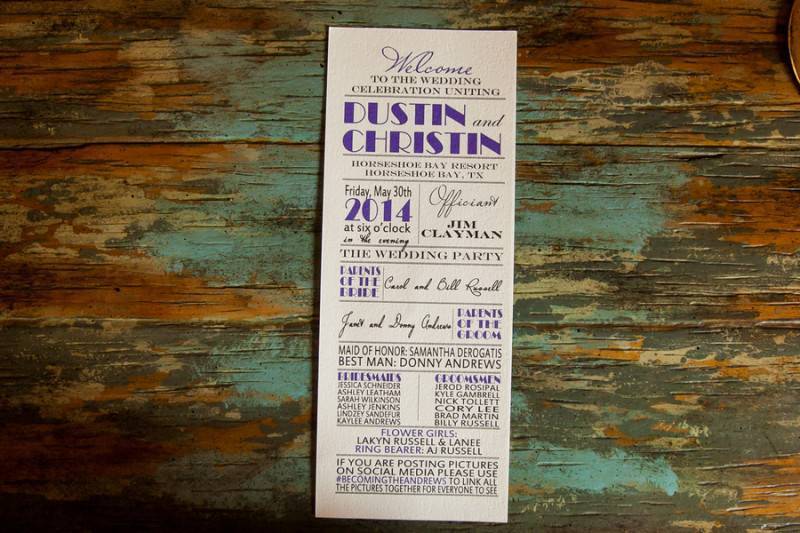 Welcome
TO THE WEDDING
CELEBRATION UNITING
DUSTIN and
CHRISTIN
HORSESHOE BAY RESORT
HORSESHOE BAY, TX
Friday, May 30th
2014
at six o'clock
in the evening
Officiant
JIM
CLAYMAN
THE WEDDING PARTY
PARENTS
OF THE
BRIDE
Carol and Bill Russell
Janet and Donny Andrews
PARENTS
OF THE
GROOM
MAID OF HONOR: SAMANTHA DEROGATIS
BEST MAN: DONNY ANDREWS
BRIDESMAIDS
JESSICA SCHNEIDER
ASHLEY LEATHAM
SARAH WILKINSON
ASHLEY JENKINS
LINDZEY SANDEFUR
KAYLEE ANDREWS
GROOMSMEN
JEROD ROSIPAL
KYLE GAMBRELL
NICK TOLLETT
CORY LEE
BRAD MARTIN
BILLY RUSSELL
FLOWER GIRLS:
LAKYN RUSSELL & LANEE
RING BEARER: AJ RUSSELL
IF YOU ARE POSTING PICTURES
ON SOCIAL MEDIA PLEASE USE
#BECOMINGTHEANDREWS TO LINK ALL
THE PICTURES TOGETHER FOR EVERYONE TO SEE